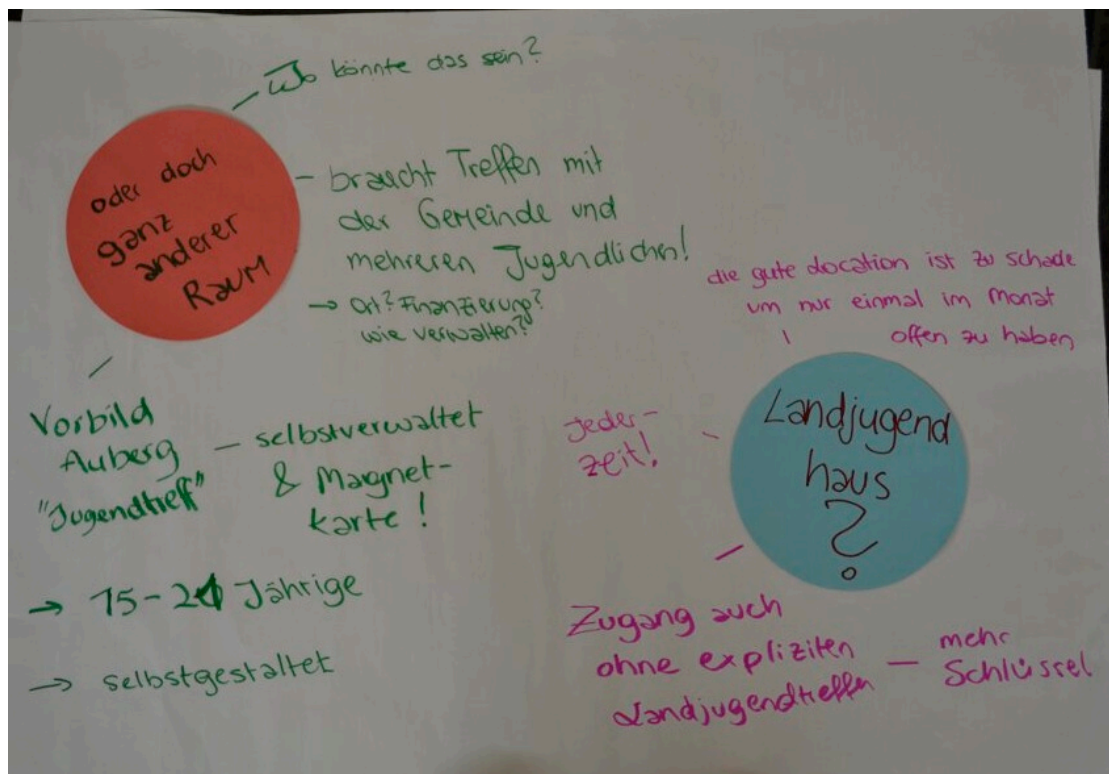 Wo könnte das sein?
oder doch
ganz
anderer
Raum
- braucht Treffen mit
der Gemeinde und
mehreren Jugendlichen!
→ Ort? Finanzierung?
wie verwalten?
Vorbild
Auberg
"Jugendtreff"
- selbstverwaltet
& Magnet-
karte!
→ 15-21 Jährige
→ selbstgestaltet
die gute Location ist zu schade
um nur einmal im Monat
offen zu haben
Landjugend
haus
?
Jeder-
zeit!
Zugang auch
ohne expliziten
Landjugendtreffen
- mehr
Schlüssel